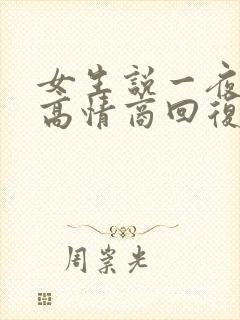 女生說一夜
高情商回復
周崇光